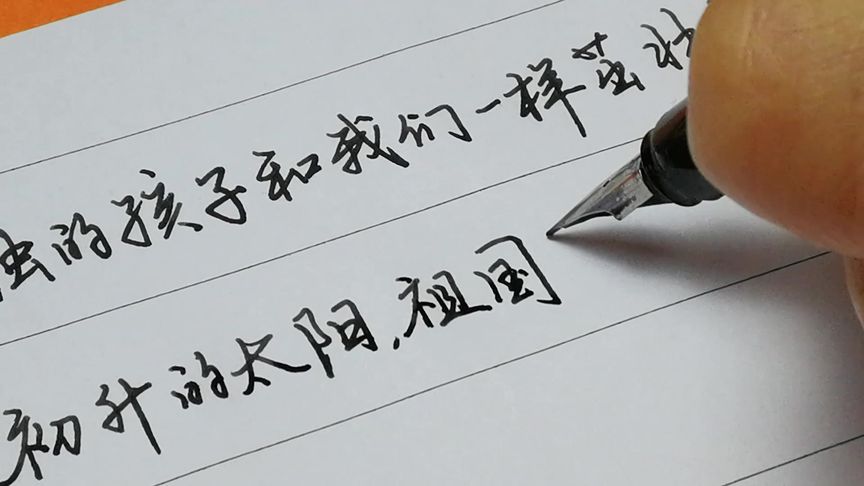 的孩子和我们一样茁壮
初升的太阳,祖国